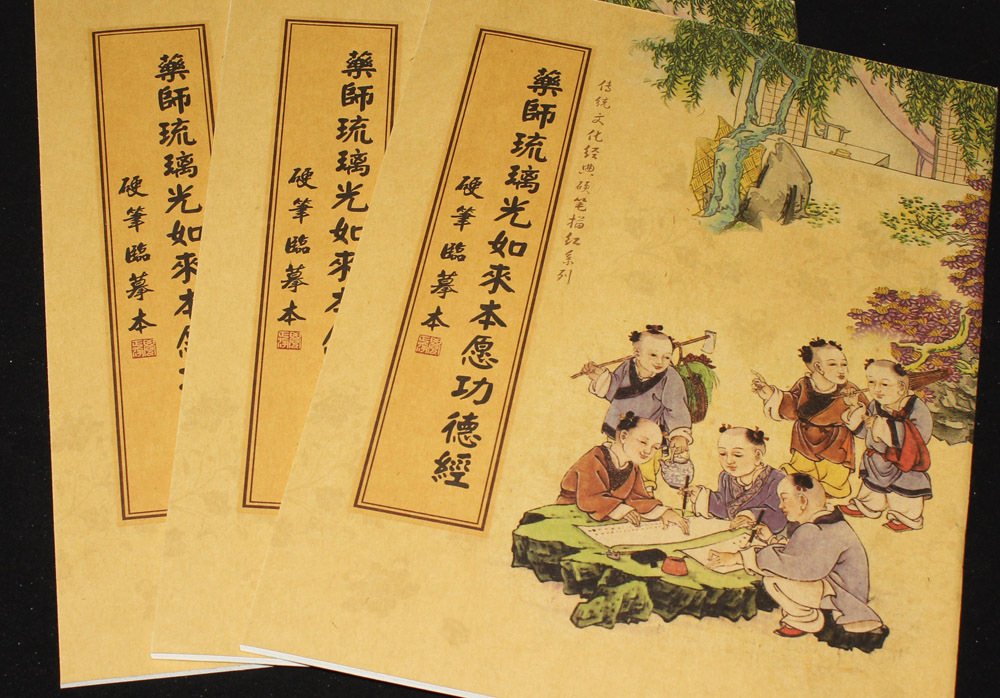 传统文化经典硬笔描红系列
藥師琉璃光如來本愿功德經
硬筆臨摹本
藥師琉璃光如來本
硬筆臨摹本
藥師琉璃光如來本愿
硬筆臨摹本